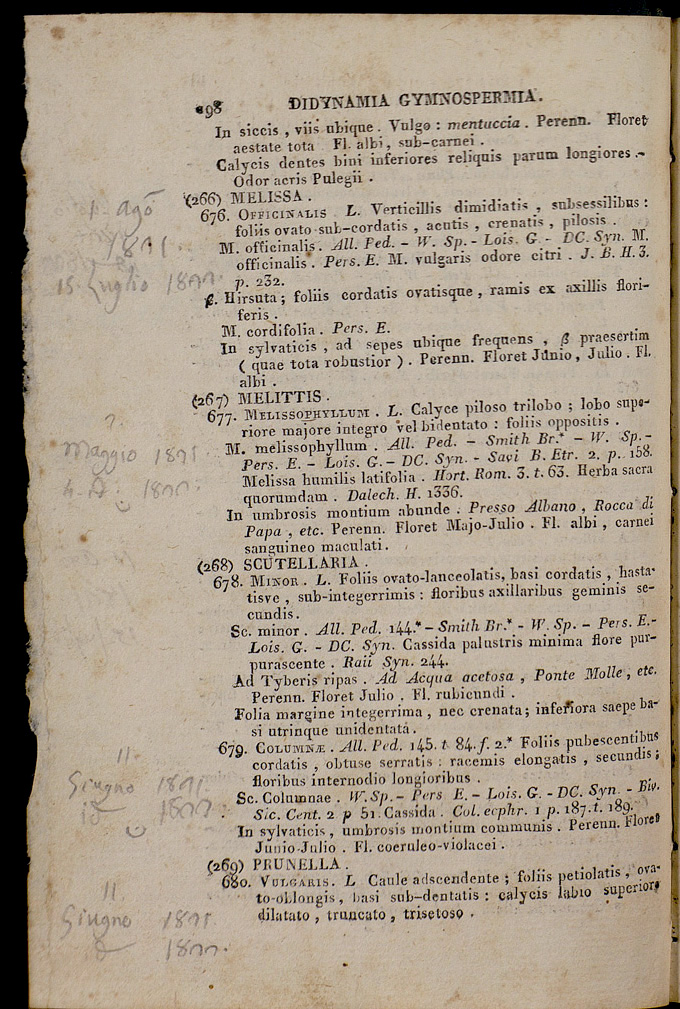 198 DIDYNAMIA GYMNOSPERMIA.
In siccis, viis ubique. Vulgo: mentuccia. Perenn. Floret
aestate tota Fl. albi, sub-carnei.
Calycis dentes bini inferiores reliquis parum longiores.-
Odor acris Pulegii.
(266) MELISSA.
676. OFFICINALIS L. Verticillis dimidiatis, subsessilibus:
foliis ovato-sub-cordatis, acutis, crenatis, pilosis.
M. officinalis. All. Ped. - W. Sp. - Lois. G. - DC. Syn. M.
officinalis. Pers. E. M. vulgaris odore citri. J. B. H. 3.
p. 232.
β. Hirsuta; foliis cordatis ovatisque, ramis ex axillis flori-
feris.
M. cordifolia. Pers. E.
In sylvaticis, ad sepes ubique frequens, β praesertim
(quae tota robustior). Perenn. Floret Junio, Julio. Fl.
albi.
1. ago
15 Luglio
(267) MELITTIS.
677. MELISSOPHYLLUM. L. Calyce piloso trilobo; lobo supe-
riore majore integro vel bidentato: foliis oppositis.
M. melissophyllum. All. Ped. - Smith Br.* - W. Sp. -
Pers. E. - Lois. G. - DC. Syn. - Savi B. Etr. 2. p. 158.
Melissa humilis latifolia. Hort. Rom. 3. t. 63. Herba sacra
quorumdam. Dalech. H. 1336.
In umbrosis montium abunde. Presso Albano, Rocca di
Papa, etc. Perenn. Floret Majo-Julio. Fl. albi, carnei
sanguineo maculati.
?
Maggio
(268) SCUTELLARIA.
678. MINOR. L. Foliis ovato-lanceolatis, basi cordatis, hasta-
tisve, sub-integerrimis: floribus axillaribus geminis se-
cundis.
Sc. minor. All. Ped. 144.* - Smith Br.* - W. Sp. - Pers. E.-
Lois. G. - DC. Syn. Cassida palustris minima flore pur-
purascente. Raii Syn. 244.
Ad Tyberis ripas. Ad Acqua acetosa, Ponte Molle, etc.
Perenn. Floret Julio. Fl. rubicundi.
Folia margine integerrima, nec crenata; inferiora saepe ba-
si utrinque unidentata.
679. COLUMNÆ. All. Ped. 145. t. 84. f. 2.* Foliis pubescentibus
cordatis, obtuse serratis: racemis elongatis, secundis;
floribus internodio longioribus.
Sc. Columnae. W. Sp. - Pers E. - Lois. G. - DC. Syn. - Biv.
Sic. Cent. 2 p 51. Cassida. Col. ecphr. 1 p. 187. t. 189.
In sylvaticis, umbrosis montium communis. Perenn. Floret
Junio-Julio. Fl. coeruleo-violacei.
11.
Giugno
(269) PRUNELLA.
680. VULGARIS. L Caule adscendente; foliis petiolatis, ova-
to-oblongis, basi sub-dentatis: calycis labio superiore
dilatato, truncato, trisetoso.
11
Giugno